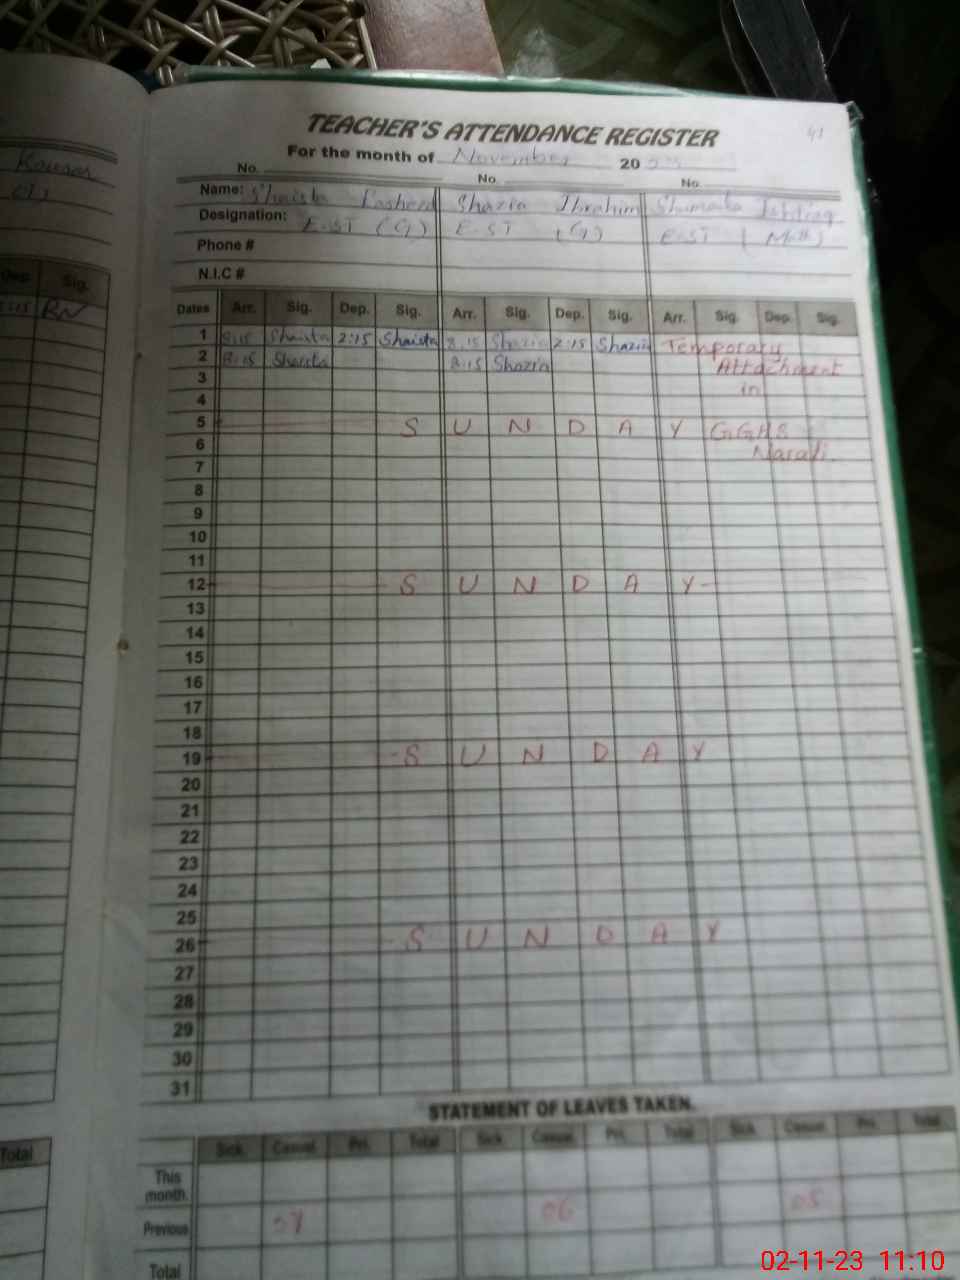 41
TEACHER'S ATTENDANCE REGISTER
For the month of November 20 23
No. No. No.
Name: Shaista Rasheed Shazia Ibrahim Shumaila Ishtiaq
Designation: E-ST (G) E-ST (G) E-ST (Math)
Phone #
N.I.C #
Dates Arr. Sig. Dep. Sig. Arr. Sig. Dep. Sig. Arr. Sig. Dep. Sig.
1 8:15 Shaista 2:15 Shaista 8:15 Shazia 2:15 Shazia Temporary
2 8:15 Shaista 8:15 Shazia Attachment
3 in
4
5 S U N D A Y GGHS
6 Narali.
7
8
9
10
11
12 S U N D A Y
13
14
15
16
17
18
19 S U N D A Y
20
21
22
23
24
25
26 S U N D A Y
27
28
29
30
31
STATEMENT OF LEAVES TAKEN.
Sick Casual Pri. Total Sick Casual Pri. Total Sick Casual Pri. Total
This
month.
Previous 06 05
Total
Kousar
Dep. Sig.
RN
Total
02-11-23 11:10